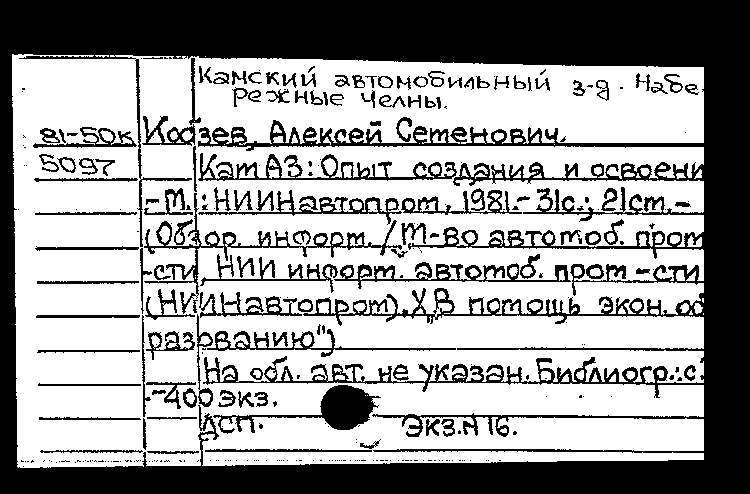 Камский автомобильный з-д. Набе
режные Челны.
81-50к Кобзев, Алексей Семенович.
5097 КамАЗ: Опыт создания и освоени
-М.: НИИНавтопром, 1981.- 31с.; 21см.-
(Обзор. информ. /М-во автомоб. пром
-сти, НИИ информ. автомоб. пром-сти
(НИИНавтопром). "В помощь экон. об
разованию").
На обл. авт. не указан. Библиогр.: с.
-400 экз.
ДСП. Экз.N 16.